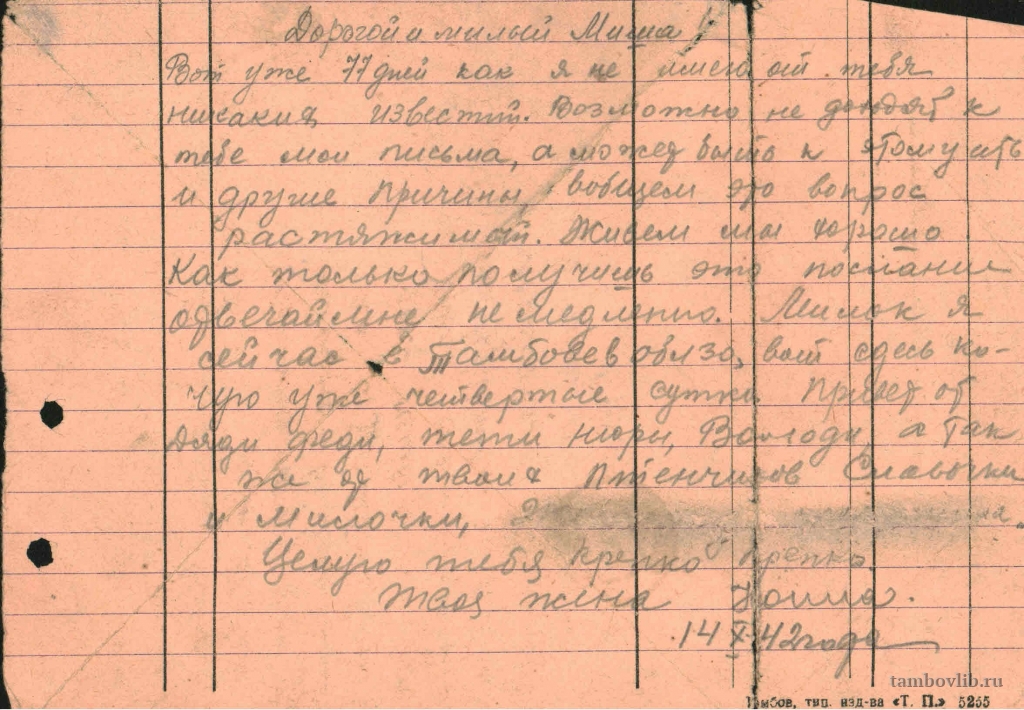 Дорогой и милый Миша!
Вот уже 77 дней как я не имею от тебя
никаких известий. Возможно не доходят к
тебе мои письма, а может быть к этому есть
и другие причины, вобщем это вопрос
растяжимый. Живем мы хорошо
Как только получишь это послание
отвечай мне немедленно. Милок я
сейчас в Тамбове в облзо, вот сдесь ко-
чую уже четвертые сутки Привет от
дяди Феди, тети Нюры, Володи, а так
же от твоих птенчиков Славочки
и Милочки,
Целую тебя крепко крепко
Твоя жена
14 X 42 года
tambovlib.ru
Тамбов, тип. изд-ва «Т. П.» 5255